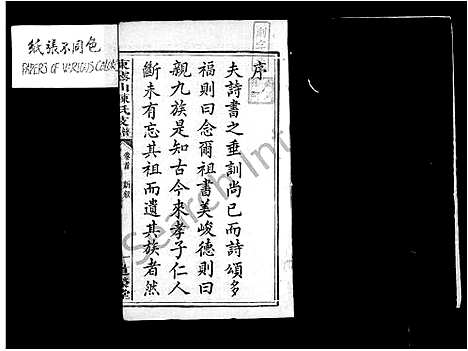 紙張不同色
PAPERS OF VARIOUS COLORS
序
夫詩書之垂訓尚已而詩頌多
福則曰念爾祖書美峻德則曰
親九族是知古今來孝子仁人
斷未有忘其祖而遺其族者然
陳氏支譜
卷首
Search Int